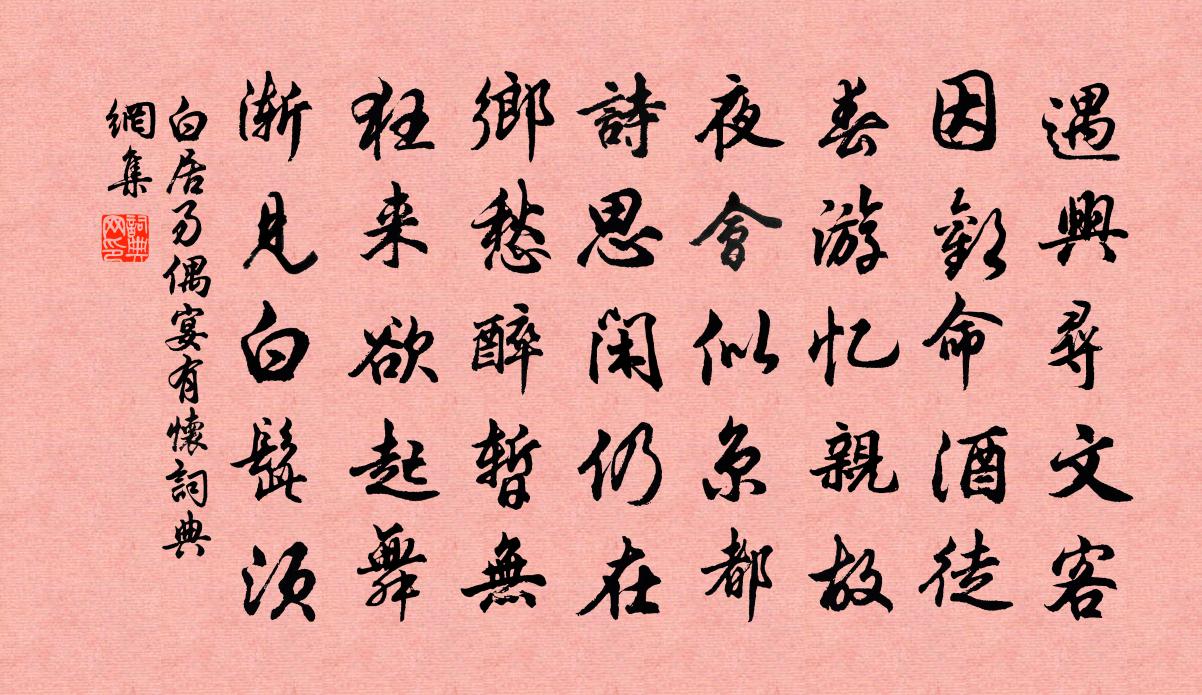 遇興尋文客
因歡命酒徒
春游忆親故
夜會似京都
詩思閑仍在
鄉愁醉暫無
狂来欲起舞
漸見白髭須
白居易偶宴有懷詞典
網集
詞典
网印